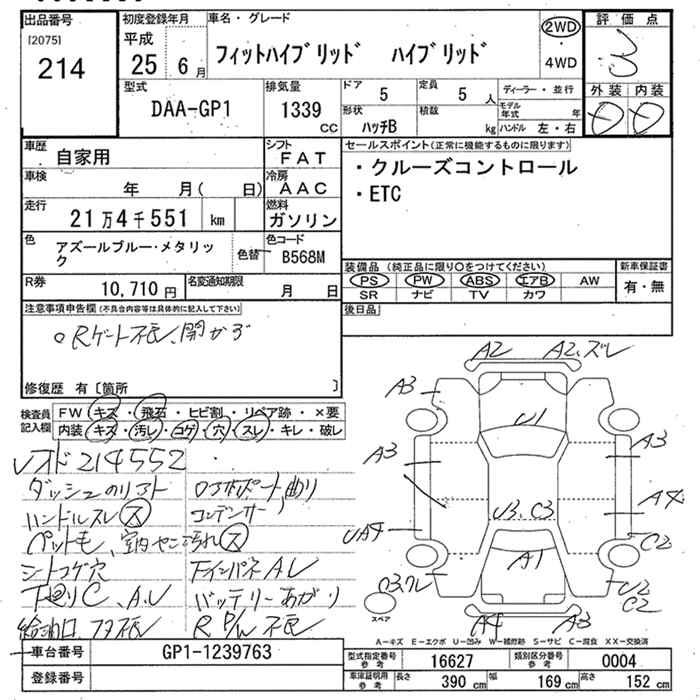 出品番号 初度登録年月 車名・グレード 2WD 評価点
[2075] 平成
214 25 6月 フィットハイブリッド ハイブリッド 4WD 3
型式 排気量 ドア 5 定員 5人 ディーラー・並行 外装 内装
DAA-GP1 1339 cc 形状 ハッチB 積載 kg モデル年式 年 D D
ハンドル 左・右
車歴 自家用 シフト FAT セールスポイント(正常に機能するものに限ります)
車検 年 月( 日) 冷房 AAC ・クルーズコントロール
走行 21万4千551 km 燃料 ガソリン ・ETC
色 アズールブルー・メタリック 色替 色コード B568M
装備品 (純正品に限り○をつけてください) 新車保証書
R券 10,710円 名変通知期限 月 日 PS PW ABS エアB AW 有・無
SR ナビ TV カワ
注意事項申告欄(不具合内容等は具体的に記入して下さい) 後日品
Rゲート不良、開かず
修復歴 有 [箇所 ]
検査員記入欄 FW キズ・飛石・ヒビ割・リペア跡・×要
内装 キズ・汚レ・コゲ・穴・スレ・キレ・破レ
メオド214552
ダッシュのリフト
ハンドルスレ ス コンデンサー
ペット毛、室内やこごられ ス
シートコゲ穴 下インパネAU
下廻りC、A、U バッテリーあがり
給油口フタ不良 R P/W 不良
A2 A2、ズレ
A3 U1
A3 A3
U3、C3 A4
UA4 C2
A1
U2
C2
スペア A4 A3
A-キズ E-エクボ U-凹み W-補修跡 S-サビ C-腐食 XX-交換済
車台番号 GP1-1239763 型式指定番号 参考 16627 類別区分番号 参考 0004
登録番号 車庫証明用 参考 長さ 390 cm 幅 169 cm 高さ 152 cm